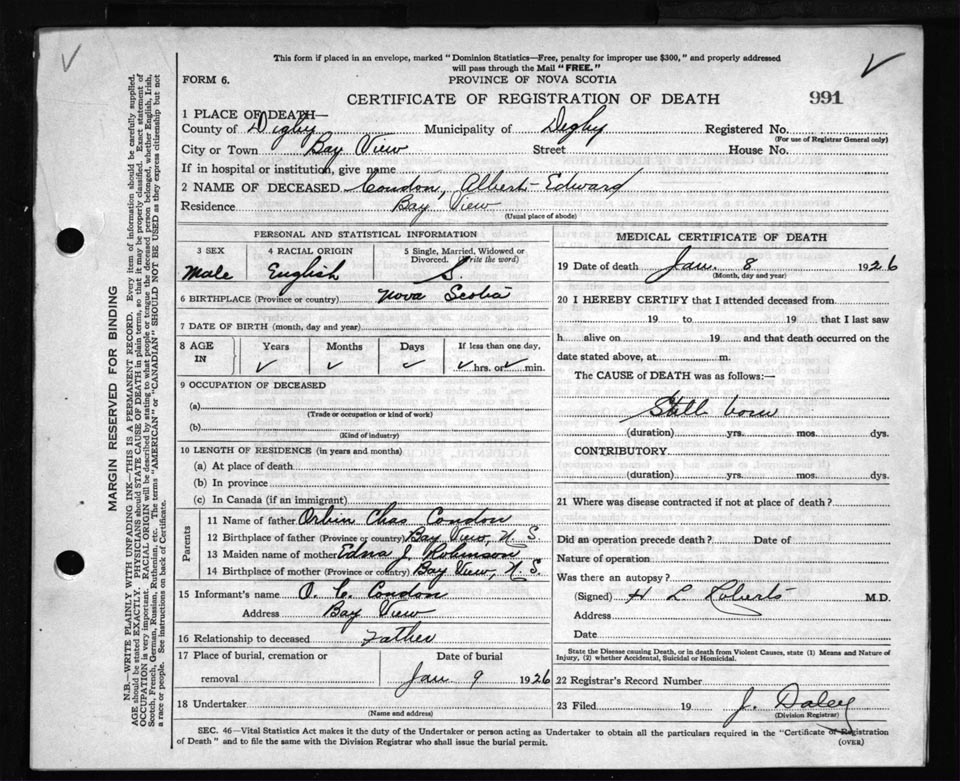 This form if placed in an envelope, marked "Dominion Statistics—Free, penalty for improper use $300," and properly addressed
will pass through the Mail "FREE."
FORM 6.
PROVINCE OF NOVA SCOTIA
CERTIFICATE OF REGISTRATION OF DEATH
991
1 PLACE OF DEATH—
County of Digby Municipality of Digby Registered No.
(For use of Registrar General only)
City or Town Bay View Street House No.
If in hospital or institution, give name
2 NAME OF DECEASED Condon, Albert Edward
Residence Bay View
(Usual place of abode)
PERSONAL AND STATISTICAL INFORMATION
3 SEX 4 RACIAL ORIGIN 5 Single, Married, Widowed or Divorced. (Write the word)
Male English S.
6 BIRTHPLACE (Province or country) Nova Scotia
7 DATE OF BIRTH (month, day and year)
8 AGE IN Years Months Days If less than one day,
hrs. or min.
9 OCCUPATION OF DECEASED
(a)
(Trade or occupation or kind of work)
(b)
(Kind of industry)
10 LENGTH OF RESIDENCE (in years and months)
(a) At place of death
(b) In province
(c) In Canada (if an immigrant)
Parents
11 Name of father Orbin Chas Condon
12 Birthplace of father (Province or country) Bay View, N. S.
13 Maiden name of mother Edna J. Robinson
14 Birthplace of mother (Province or country) Bay View, N. S.
15 Informant's name O. C. Condon
Address Bay View
16 Relationship to deceased Father
17 Place of burial, cremation or removal Date of burial
Jan 9 1926
18 Undertaker
(Name and address)
MEDICAL CERTIFICATE OF DEATH
19 Date of death Jan. 8 1926
(Month, day and year)
20 I HEREBY CERTIFY that I attended deceased from
19 to 19 that I last saw
h alive on 19 and that death occurred on the
date stated above, at m.
The CAUSE of DEATH was as follows:—
Still born
(duration) yrs. mos. dys.
CONTRIBUTORY
(duration) yrs. mos. dys.
21 Where was disease contracted if not at place of death?
Did an operation precede death? Date of
Nature of operation
Was there an autopsy?
(Signed) H L Roberts M.D.
Address
Date
State the Disease causing Death, or in death from Violent Causes, state (1) Means and Nature of
Injury, (2) whether Accidental, Suicidal or Homicidal.
22 Registrar's Record Number
23 Filed 19 J. Daley
(Division Registrar)
SEC. 46—Vital Statistics Act makes it the duty of the Undertaker or person acting as Undertaker to obtain all the particulars required in the "Certificate of Registration
of Death" and to file the same with the Division Registrar who shall issue the burial permit.
(OVER)
MARGIN RESERVED FOR BINDING
N.B.—WRITE PLAINLY WITH UNFADING INK—THIS IS A PERMANENT RECORD. Every item of information should be carefully supplied.
AGE should be stated EXACTLY. PHYSICIANS should STATE CAUSE OF DEATH in plain terms, so that it may be properly classified. Exact statement of
OCCUPATION is very important. RACIAL ORIGIN will be described by stating to what people or tongue the deceased person belonged, whether English, Irish,
Scotch, French, German, Russian, Ruthenian, etc. The terms "AMERICAN" or "CANADIAN" SHOULD NOT BE USED as they express citizenship but not
a race or people. See instructions on back of Certificate.